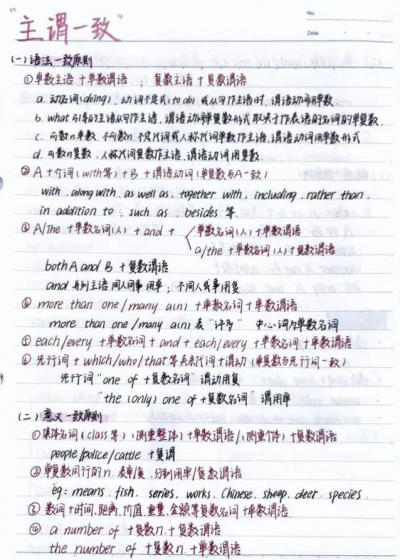 No
Date
"主谓一致"
(一)语法一致原则
①单数主语+单数谓语；复数主语+复数谓语
a. 动名词(doing)、动词不定式(to do)或从句作主语时,谓语动词用单数.
b. what引导的主语从句作主语,谓语动词单复数形式取决于作表语的名词的单复数.
c. 可数n单数、不可数n、不定代词或人称代词单数作主语,谓语动词用单数形式
d. 可数n复数、人称代词复数作主语,谓语动词用复数.
②A+介词(with等)+B+谓语动词(单复数与A一致)
with、along with、as well as、together with、including、rather than、
in addition to、such as、besides 等.
③A/The+单数名词(人)+and+ 单数名词(人)+单数谓语
a/the+单数名词(人)+复数谓语
both A and B +复数谓语
and 并列主语 同人同事用单;不同人或事用复
④more than one/many a(n)+单数名词+单数谓语
more than one/many a(n) 表"许多" 中心词为单数名词
⑤each/every+单数名词+and+each/every+单数名词+单数谓语.
⑥先行词+which/who/that等关系代词+谓动(单复数与先行词一致)
先行词"one of +复数名词"谓动用复
"the (only) one of +复数名词"谓用单
(二)意义一致原则
①集体名词(class等)(侧重整体)+单数谓语/(侧重个体)+复数谓语
people/police/cattle +复谓
②单复数同行的n. 表单/复,分别用单/复数谓语
eg: means. fish. series. works. Chinese. sheep. deer. species.
③数词+时间、距离、价值、重量、金额等复数名词+单数谓语.
④a number of +复数n.+复数谓语
the number of +复数n.+单数谓语